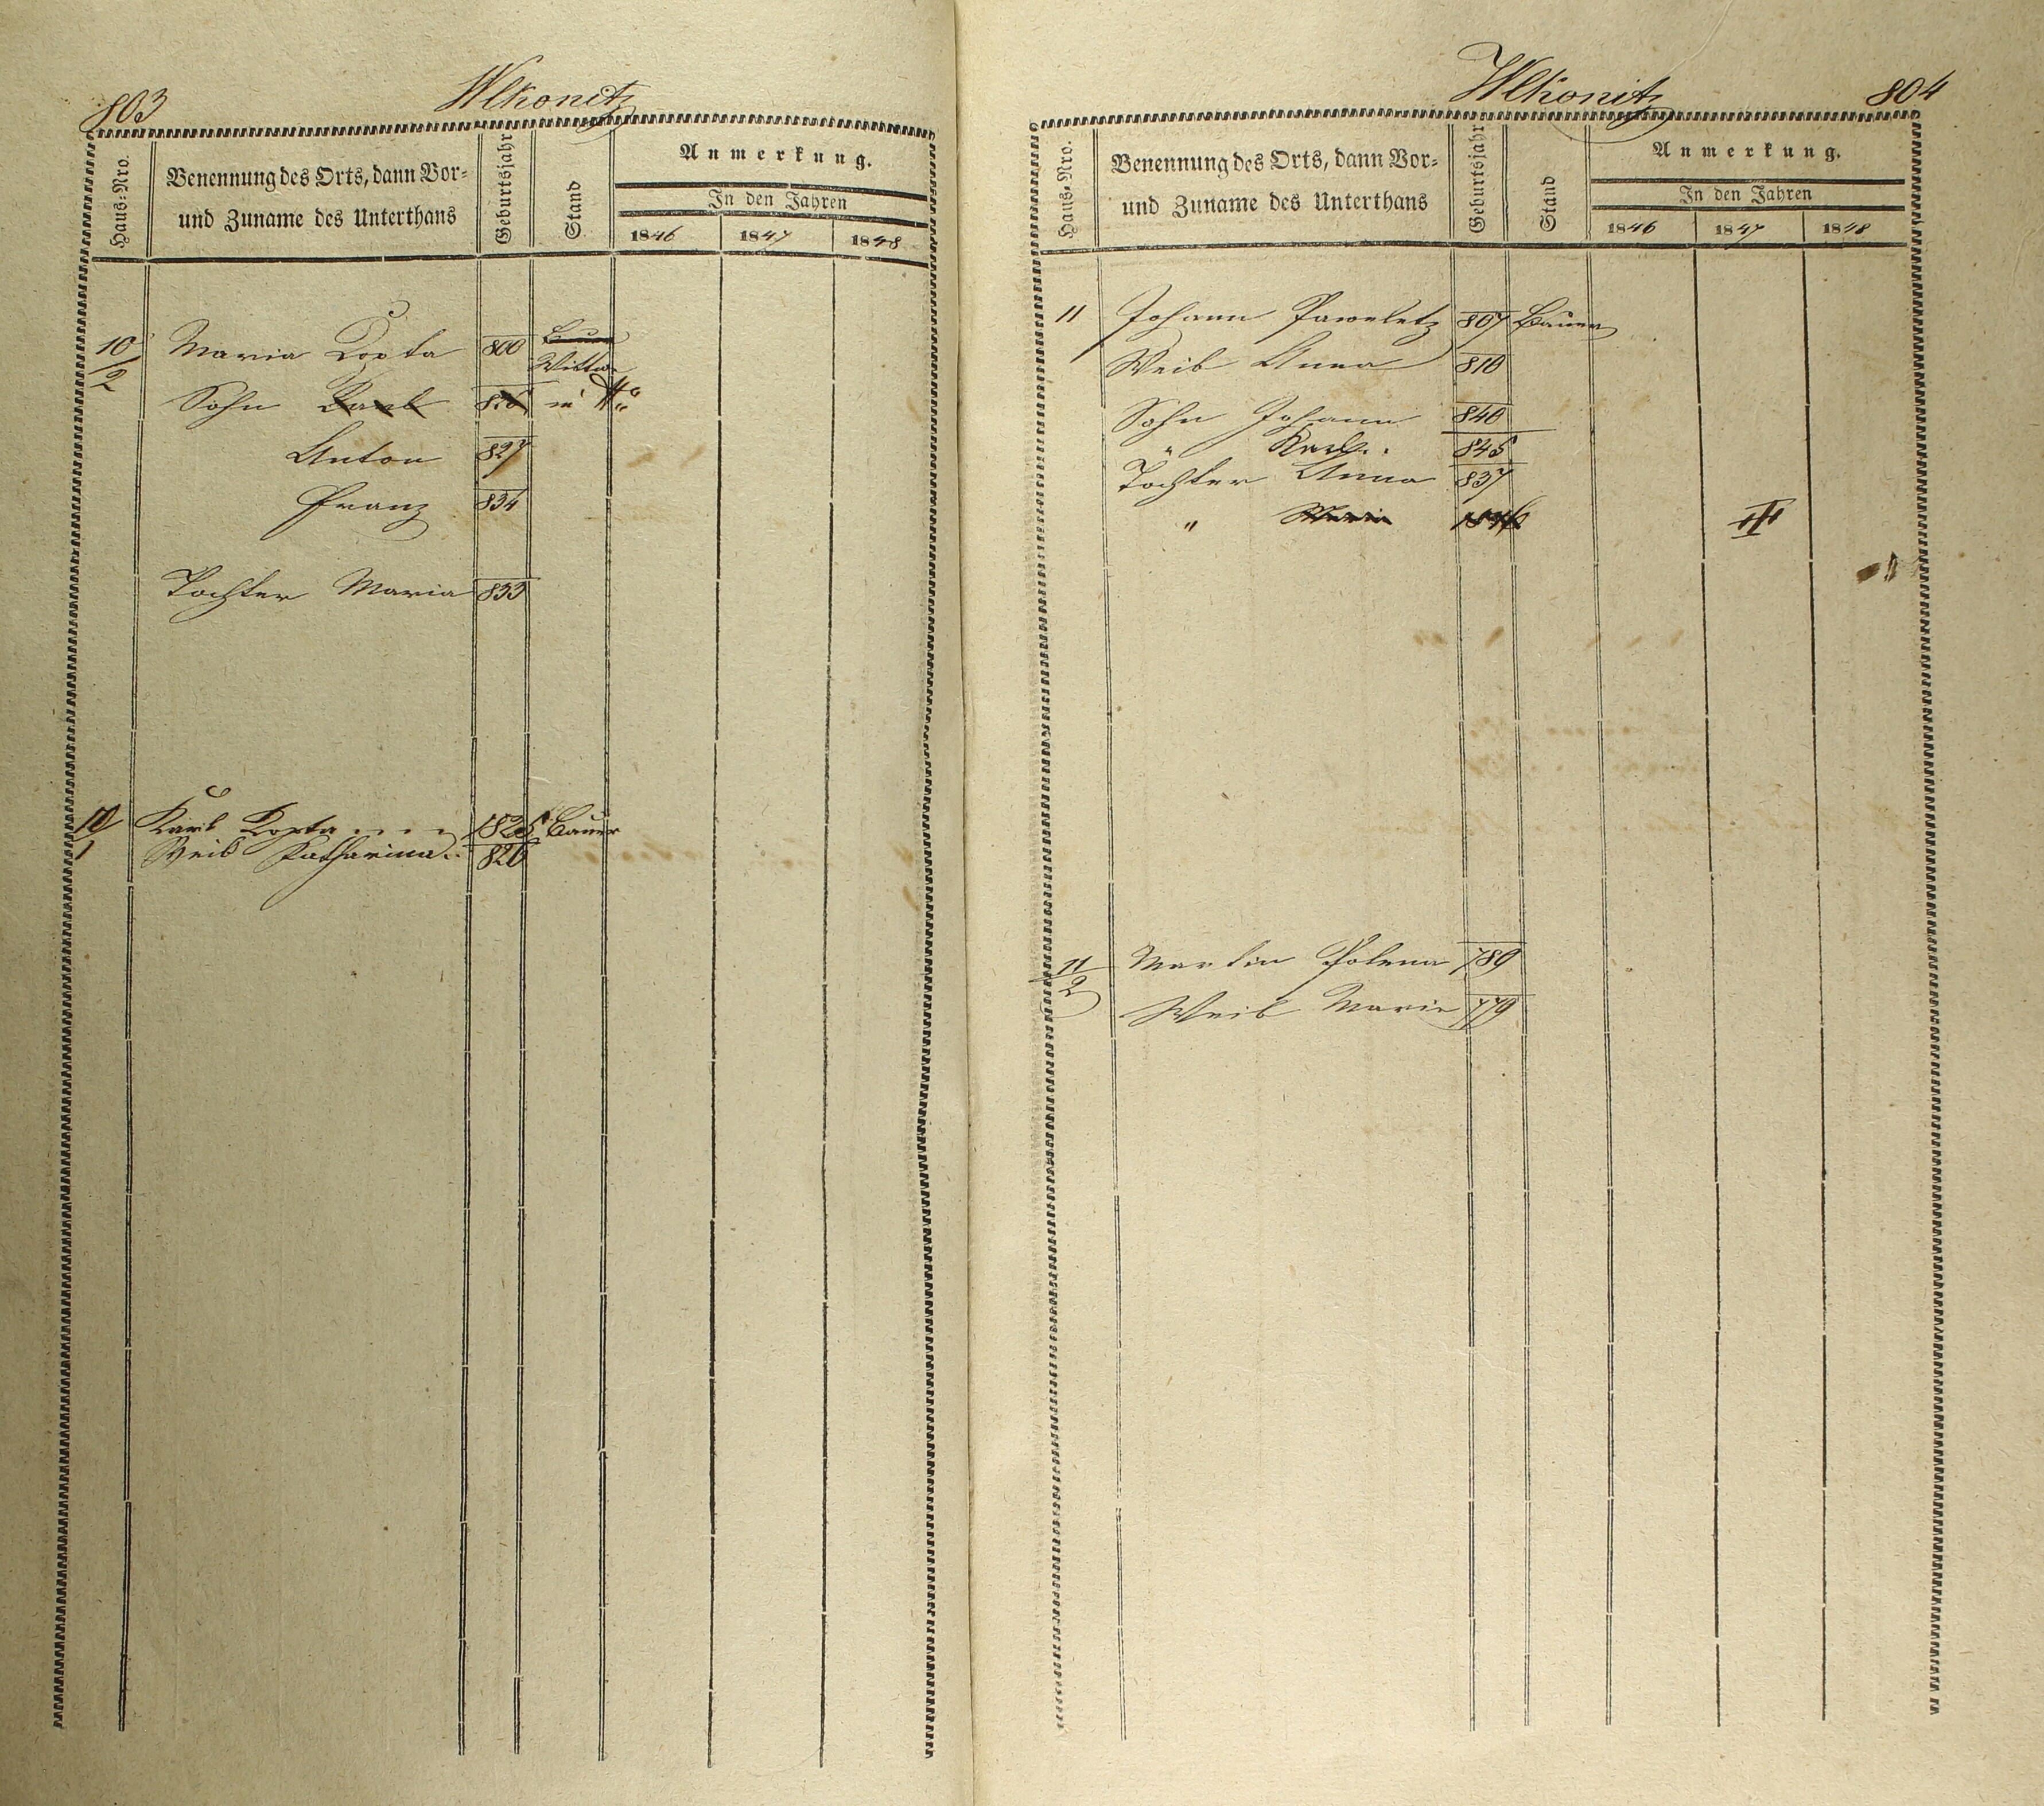 803
Wlkonitz
Haus-Nro.
Benennung des Orts, dann Vor-
und Zuname des Unterthans
Geburtsjahr
Stand
Anmerkung.
In den Jahren
1846 1847 1848
10/2 Maria Kopta 800 Bauer
Wittwe
Sohn Karl in
Anton 827
Franz 834
Tochter Maria 833
10/1 Karl Kopta 1825 Bauer
Weib Katharina 826
Wlkonitz
804
Haus-Nro.
Benennung des Orts, dann Vor-
und Zuname des Unterthans
Geburtsjahr
Stand
Anmerkung.
In den Jahren
1846 1847 1848
11 Johann Paweletz 807 Bauer
Weib Anna 810
Sohn Johann 840
" Karl 845
Tochter Anna 837
" Maria 1846
11/2 Martin Polena 789
Weib Marie 779